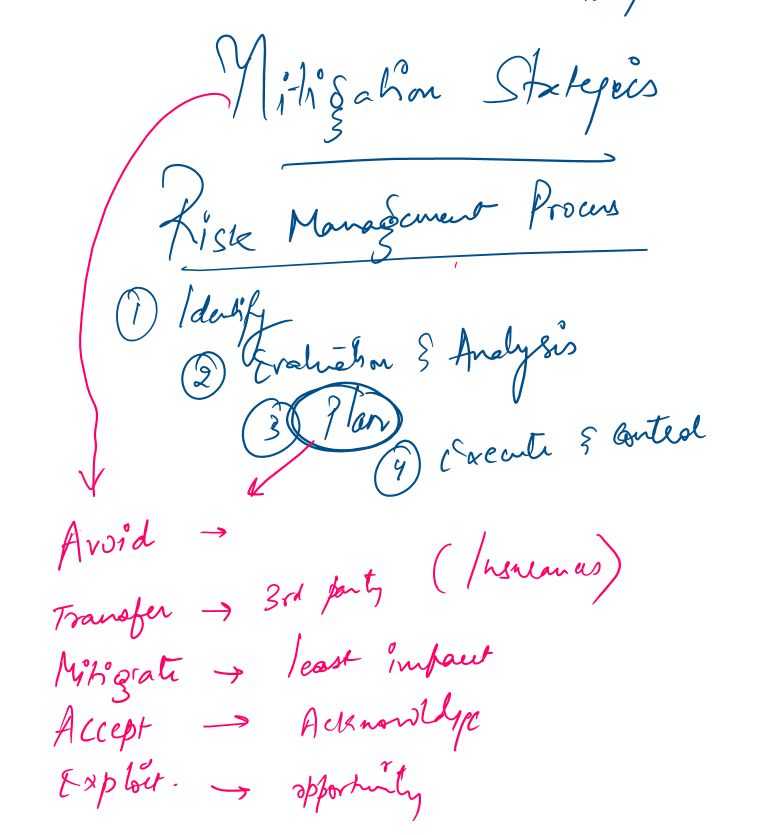 Mitigation Strategies
Risk Management Process
① Identify
② Evaluation & Analysis
③ Plan
④ Execute & Control
Avoid →
Transfer → 3rd party (Insurances)
Mitigrate → least impact
Accept → Acknowldge
Exploit. → opportunity